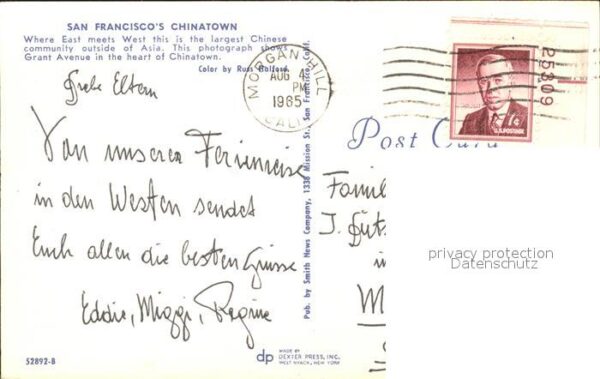 SAN FRANCISCO'S CHINATOWN
Where East meets West this is the largest Chinese
community outside of Asia. This photograph shows
Grant Avenue in the heart of Chinatown.
Color by Russ Halford
Liebe Eltern
Von unserer Ferienreise
in den Westen sendet
Euch allen die besten Grüsse
Eddie, Miggi, Regine
52892-B
Pub. by Smith News Company, 1338 Mission St., San Francisco, Calif.
dp
MADE BY
DEXTER PRESS, INC.
WEST NYACK, NEW YORK
MORGAN HILL
AUG 4
PM
1965
CALIF
25309
7¢
U.S. POSTAGE
Post Card
Famil
J.
in
M
privacy protection
Datenschutz